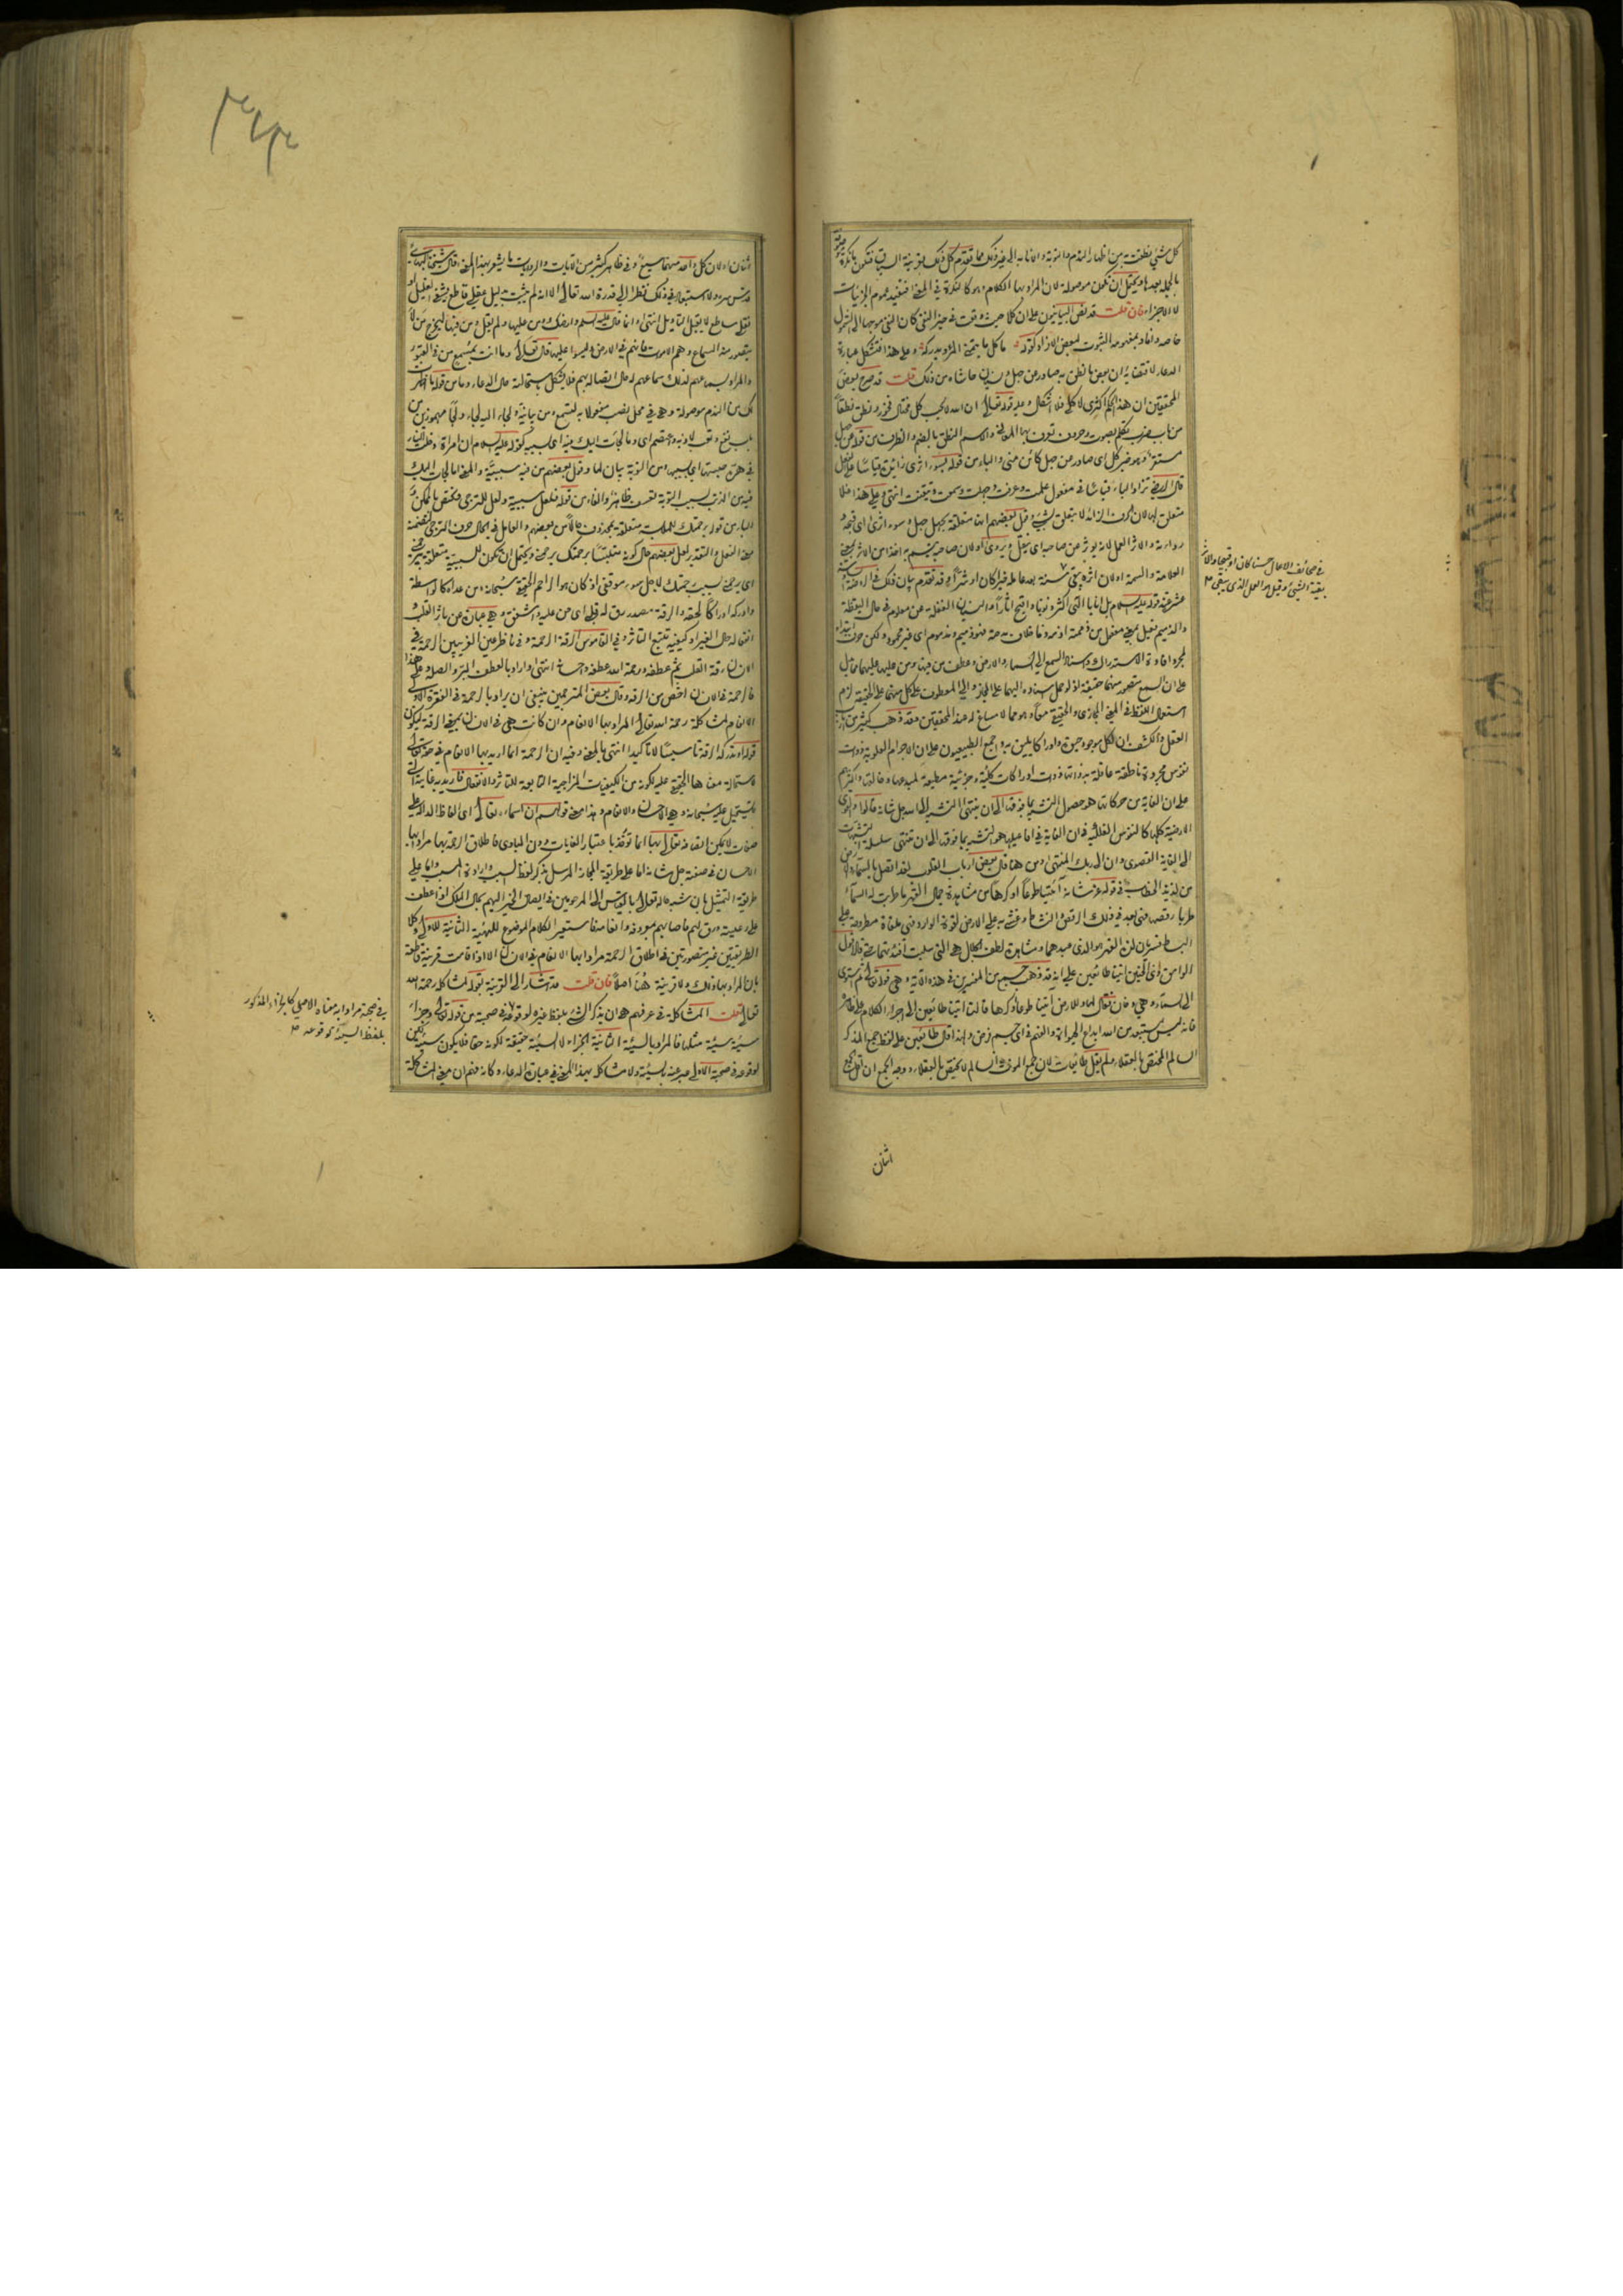 كل شئ نطقت به من اظهار الندم والتوبة والانابة الى غير ذلك مما تقدم كل ذلك بقرينة السياق فتكون نكرة موصوفة
بالجملة بعدها ويحتمل ان تكون موصولة لان المراد بها الكلام وهو كالنكرة في المعنى فتفيد عموم الجزئيات
لا الاجزاء فان قلت قد نص البيانيون على ان كلا حيث وقعت في حيز النفي كان النفي موجها الى الشمول
خاصة وافاد بمفهومه الثبوت لبعض الافراد كقوله ما كل ما يتمنى المرء يدركه وعلى هذا فتشكل عبارة
الدعاء لاقتضائه ان بعض ما نطق به صادر عن جهل وسوء حاشاه من ذلك قلت قد صرح بعض
المحققين ان هذا الحكم اكثري لا كلي فلا اشكال وعليه قوله تعالى ان الله لا يحب كل مختال فخور ونطق نطقا
من باب ضرب تكلم بصوت وحروف تعرف بها المعاني والاسم النطق بالضم والظرف من قوله عن جهل
مستقر وهو خبر كل اي صادر عن جهل كائن مني والباء من قوله بسوء اثري زائدة قياسا على
قال الرضي تزاد الباء قياسا في مفعول علمت وعرفت وجهلت وسمعت وتيقنت انتهى وعلى هذا فلا
متعلق لها لان الحرف الزائد لا يتعلق بشئ وقيل بعضهم انها متعلقة بجهل جهل وسوء اثري اي قبحه و
رداءته والاثر العمل لانه يؤثر عن صاحبه اي ينقل ويروى او لان صاحبه
العلامة والسمة او لان اثره يبقى سنة بعد عامله خيرا كان او شرا وقد تقدم بيان ذلك في الروضة
عشر عند قوله عليه السلام بل انا يا الهي اكثر ذنوبا واقبح اثارا والنسيان الغفلة عن معلوم في حال اليقظة
والذميم فعيل بمعنى مفعول من ذممته اذمه وذما خلاف مدحته فهو ذميم ومذموم اي غير محمود ولكن حرف ابتداء
لمجرد افادة الاستدراك واسناد السمع الى السماء والارض وعطف من فيها ومن عليها عليهما
على ان السمع متصور منهما حقيقة اذ لو حمل اسناده اليهما على المجاز والى المعطوف على كل منهما على الحقيقة لزم
استعمال اللفظ في المعنى المجازي والحقيقي معا وهو مما لا مساغ له عند المحققين وقد ذهب كثير من ارباب
العقل والكشف ان لكل موجود حيوة وادراكا يليق به واجمع الطبيعيون على ان الاجرام العلوية ذوات
نفوس مجردة ناطقة عاقلة بذواتها ذوات ادراكات كلية وجزئية مطيعة لمبدعها وخالقها واكثرهم
على ان الغاية من حركاتها هو حصول التشبه بما فوقها الى ان ينتهي التشبه الى الله جل شانه قالوا والقوى
الارضية كلها كالنفوس الفلكية في ان الغاية في افاعيلها هو التشبه بما فوقها الى ان تنتهي سلسلة التشبهات
الى الغاية القصوى وان الى ربك المنتهى ومن هنا قال بعض ارباب القلوب لقد اتصل بالسماء والارض
من لذيذ الخطاب في قوله عز شانه ائتيا طوعا او كرها من مشاهدة جمال القهر ما طربت له السماء
طربا رقصها فهي بعد في ذلك الرقص والنشاط وغشي به على الارض لقوة الوارد فهي ملقاة مطروحة على
البساط فسريان لذة القهر هو الذي عبدهما ومشاهدة لطف الجلال هي التي سلبت افئدتهما حتى قالا قول
الوامق ذي الحنين اتينا طائعين على انه قد ذهب جمع من المفسرين في هذه الاية وهي قوله تعالى ثم استوى
الى السماء وهي دخان فقال لها وللارض ائتيا طوعا او كرها قالتا اتينا طائعين الى اجراء الكلام على ظاهره
فانه ليس بمستبعد من الله ابداع الحيوة والفهم في اي جسم فرض ولهذا قال طائعين على لفظ جمع المذكر
السالم المختص بالعقلاء ولم يقل طائعات لان جمع المؤنث السالم لا يختص بالعقلاء ووجه الجمع ان اقل الجمع
في صحائف الاعمال حسنا كان او قبيحا والاثر
بقية الشئ وقيل هو العمل الذي يبقى
اثنان
اثنان او لان كل واحدة منهما سبع وفي ظاهر كثير من الايات والروايات ما يشعر بهذا المعنى قال شيخنا البهائي
قدس سره ولا استبعاد في ذلك نظرا الى قدرة الله تعالى الا انه لم يثبت بدليل عقلي قاطع
نقلي ساطع لا يقبل التأويل انتهى وانما قال عليه السلام وارضك ومن عليها ولم يقل ومن فيها ليخرج من لا
يتصور منه السماع وهم الاموات فانهم في الارض وليسوا عليها قال تعالى وما انت بمسمع من في القبور
والمراد بسماعهم
لك من الندم موصولة وهي في محل نصب مفعولا به لتسمع ومن بيانية ولجأ اليه لجاء ولجأ مهموزين من
باب نفع وتعب لاذ به واعتصم اي وما لجأت اليك فيه اي بسببه كقوله عليه السلام ان امراة دخلت النار
في هرة حبستها اي بسببها ومن التوبة بيان لما وقول بعضهم من فيه سببية والمعنى اما لجأت اليك
فيه من الذنب بسبب التوبة تعسف ظاهر والفاء من قوله فلعل سببية ولعل للترجي وتختص بالممكن و
الباء من قوله برحمتك للملابسة متعلقة بمحذوف حالا من بعضهم والعامل في الحال حرف الترجي لتضمنه
معنى الفعل والتقدير لعل بعضهم حال كونه متلبسا برحمتك يرحمني ويحتمل ان تكون للسببية متعلقة بيرحمني
اي يرحمني بسبب رحمتك لاجل سوء موقفي اذ كان هو الراحم الحقيقي سبحانه ومن عداه كالواسطة
وادركه ادراكا لحقه والرقة مصدر رق له قلبي اي حن عليه واشفق وهي عبارة عن تاثر القلب
انفعاله لحال الغير او كيفية تتبع التاثر وفي القاموس الرقة الرحمة وفي ناظر عين الغريبين الرحمة في
الانسان رقة القلب ثم عطفه ورحمة الله عطفه واحسانه انتهى واراد بالعطف البر والصلة وعلى هذا
فالرحمة في الانسان اخص من الرقة وقال بعض المترجمين ينبغي ان يراد بالرحمة في الفقرة الاولى
الانعام لمشاكلة رحمة الله تعالى المراد بها الانعام وان كانت هي في الانسان بمعنى الرقة ليكون
قوله او تدركه الرقة تاسيسا لا تاكيدا انتهى بالمعنى وفيه ان الرحمة انما اريد بها الانعام في حقه تعالى
لاستحالة معناها الحقيقي عليه لكونه من الكيفيات المزاجية التابعة للتاثر والانفعال فاريد به غايته التي
لا تستحيل عليه سبحانه وهي الاحسان والانعام وهذا معنى قولهم ان اسماء الله تعالى اي الفاظ الدالة على
صفات لا يمكن اتصافه تعالى بها انما تؤخذ باعتبار الغايات دون المبادي فاطلاق الرحمة بها مرادا بها
الاحسان في صفته جل شانه اما على طريقة المجاز المرسل بذكر لفظ السبب وارادة المسبب واما على
طريقة التمثيل بان شبه حاله تعالى بالقياس الى المرحومين في ايصال الخير اليهم بحال الملك اذا عطف
على رعيته ورق لهم فاصابهم بمعروفه وانعامه فاستعير الكلام الموضوع للهيئة الثانية للاولى وكلا
الطريقتين غير متصورتين في اطلاق الرحمة مرادا بها الانعام في الانسان الا اذا قامت قرينة قاطعة
بان المراد بها ذلك ولا قرينة هنا اصلا فان قلت قد اشار الى القرينة بقوله لمشاكلة رحمة الله
تعالى قلت المشاكلة في عرفهم هي ان يذكر الشئ بلفظ غيره لوقوعه في صحبته من قوله تعالى وجزاء
سيئة سيئة مثلها فالمراد بالسيئة الثانية الجزاء لا السيئة حقيقة لكونه حقا فلا يكون سيئة لكن
لوقوعه في صحبة الاولى عبر عنه بسيئة ولا مشاكلة بهذا المعنى في عبارة الدعاء وكانه فهم ان معنى المشاكلة
في صحبته مرادا به معناه الاصلي كالجزاء المذكور
بلفظ السيئة لوقوعه